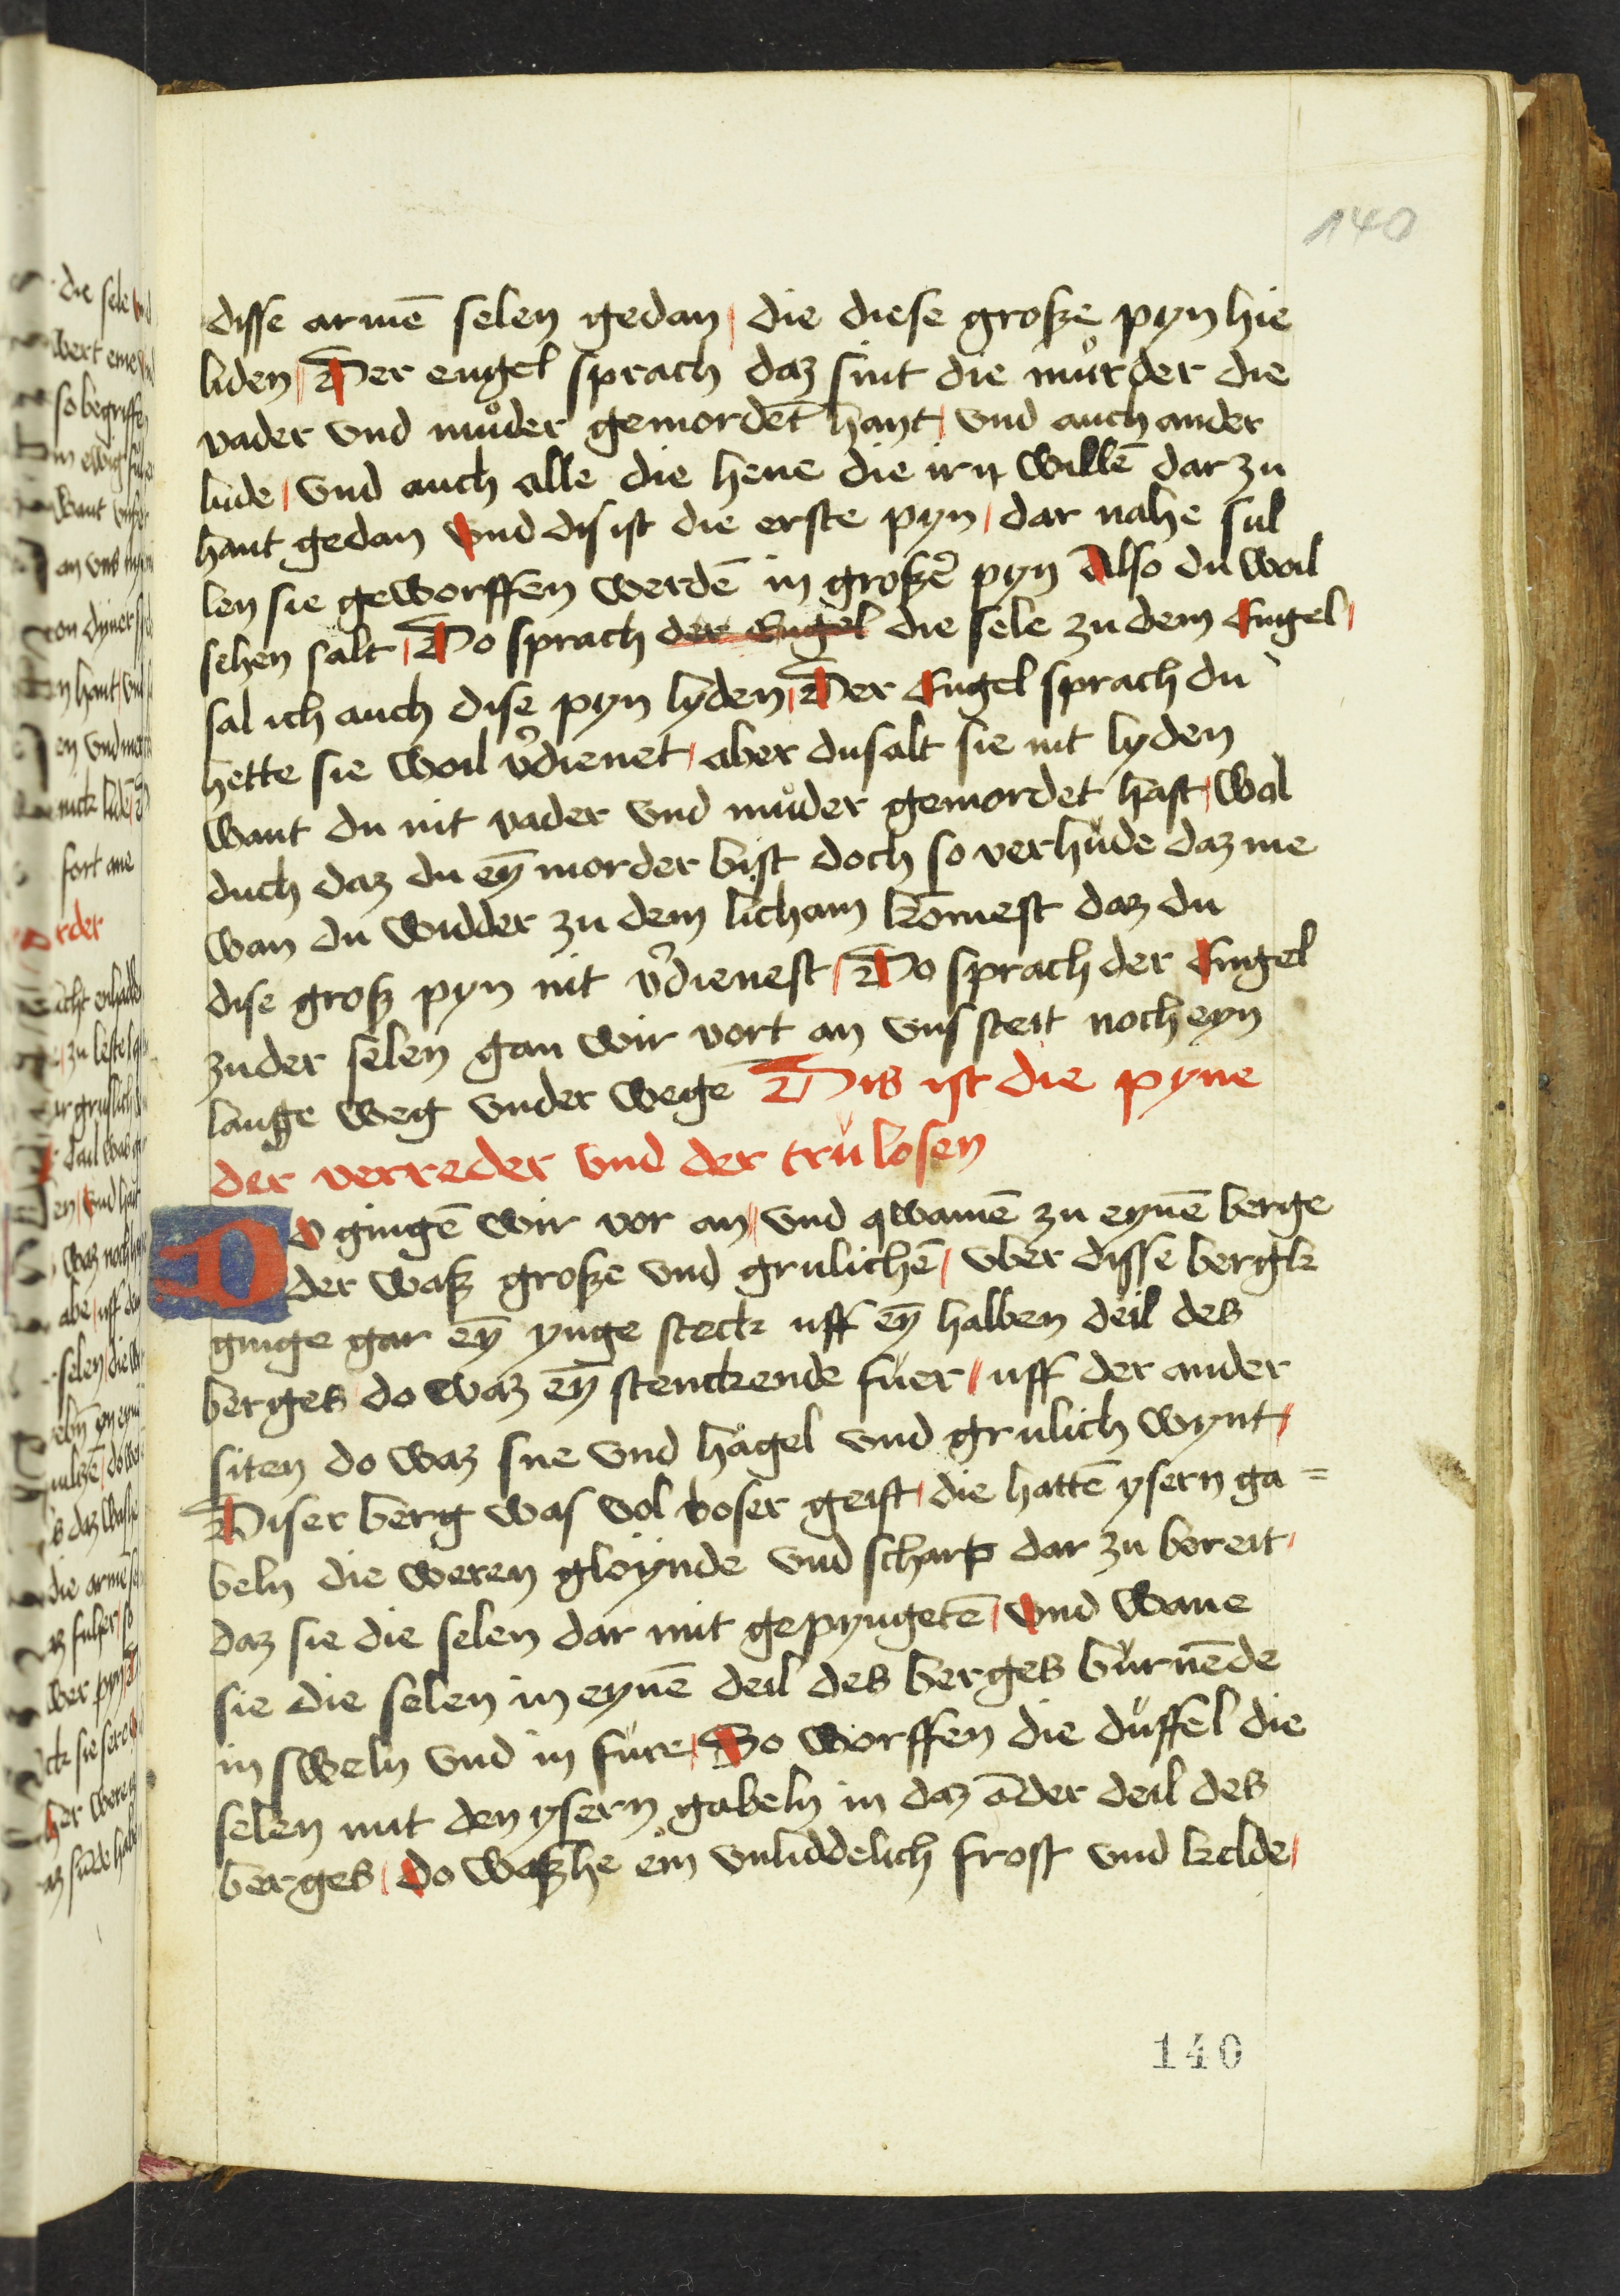 140
disse armē selen gedan / die diese große pyn hie
liden / Der engel sprach daz sint die mürder die
vader vnd můder gemordet hant / vnd auch ander
lude / vnd auch alle die hene die irn willē dar zu
hant gedan vnd dis ist die erste pyn / dar nahe sul
len sie geworffen werdē in großer pyn Also du woil
sehen salt / Do sprach der Engel die sele zu dem Engel /
sal ich auch dise pyn lyden / Der Engel sprach du
hette sie woil v̄dienet / aber du salt sie nit lyden
want du nit vader vnd můder gemordet hast / wal
duch daz du eyn̄ morder bist doch so verhude daz me
wan du widder zu dem licham komest daz du
dise groß pyn nit v̄dienest / Do sprach der Engel
zu der selen gan wir vort an vns steit noch eyn
lange weg vnder wege Dis ist die pyne
der verreder vnd der trulosen
Do gingē wir vor an / vnd qwamē zu eynē berge
der waß große vnd grulichē / vber disse bergk
ginge gar eyn̄ ynge steck uff eyn̄ halben deil des
berges do waz eyn̄ stenckende füer / uff der ander
siten do waz sne vnd hagel vnd grulich wynt /
Diser berg was vol boser geist / die hattē ysern ga=
beln die weren gloynde vnd scharp dar zu bereit /
daz sie die selen dar mit gepyngetē / vnd wane
sie die selen in eynē deil des berges burnēde
in sweln vnd in füre / So worffen die duffel die
selen mit den ysern gabeln in daz āder deil des
berges / do waßhe ein vnliddelich frost vnd kelde /
140